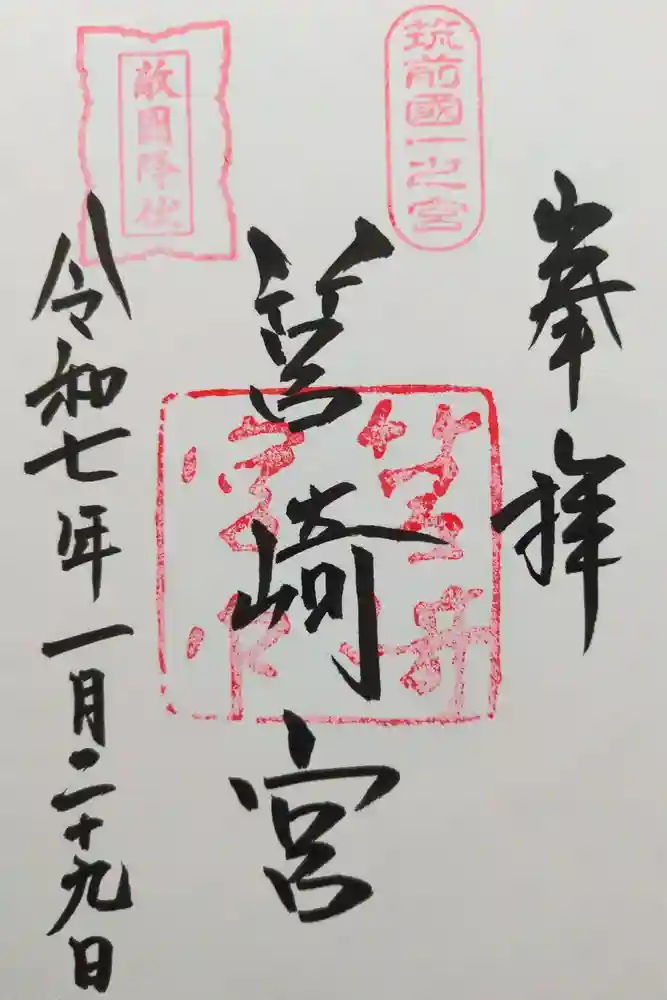 奉拝
筑前國一之宮
筥崎宮
敵国降伏
令和七年一月二十九日